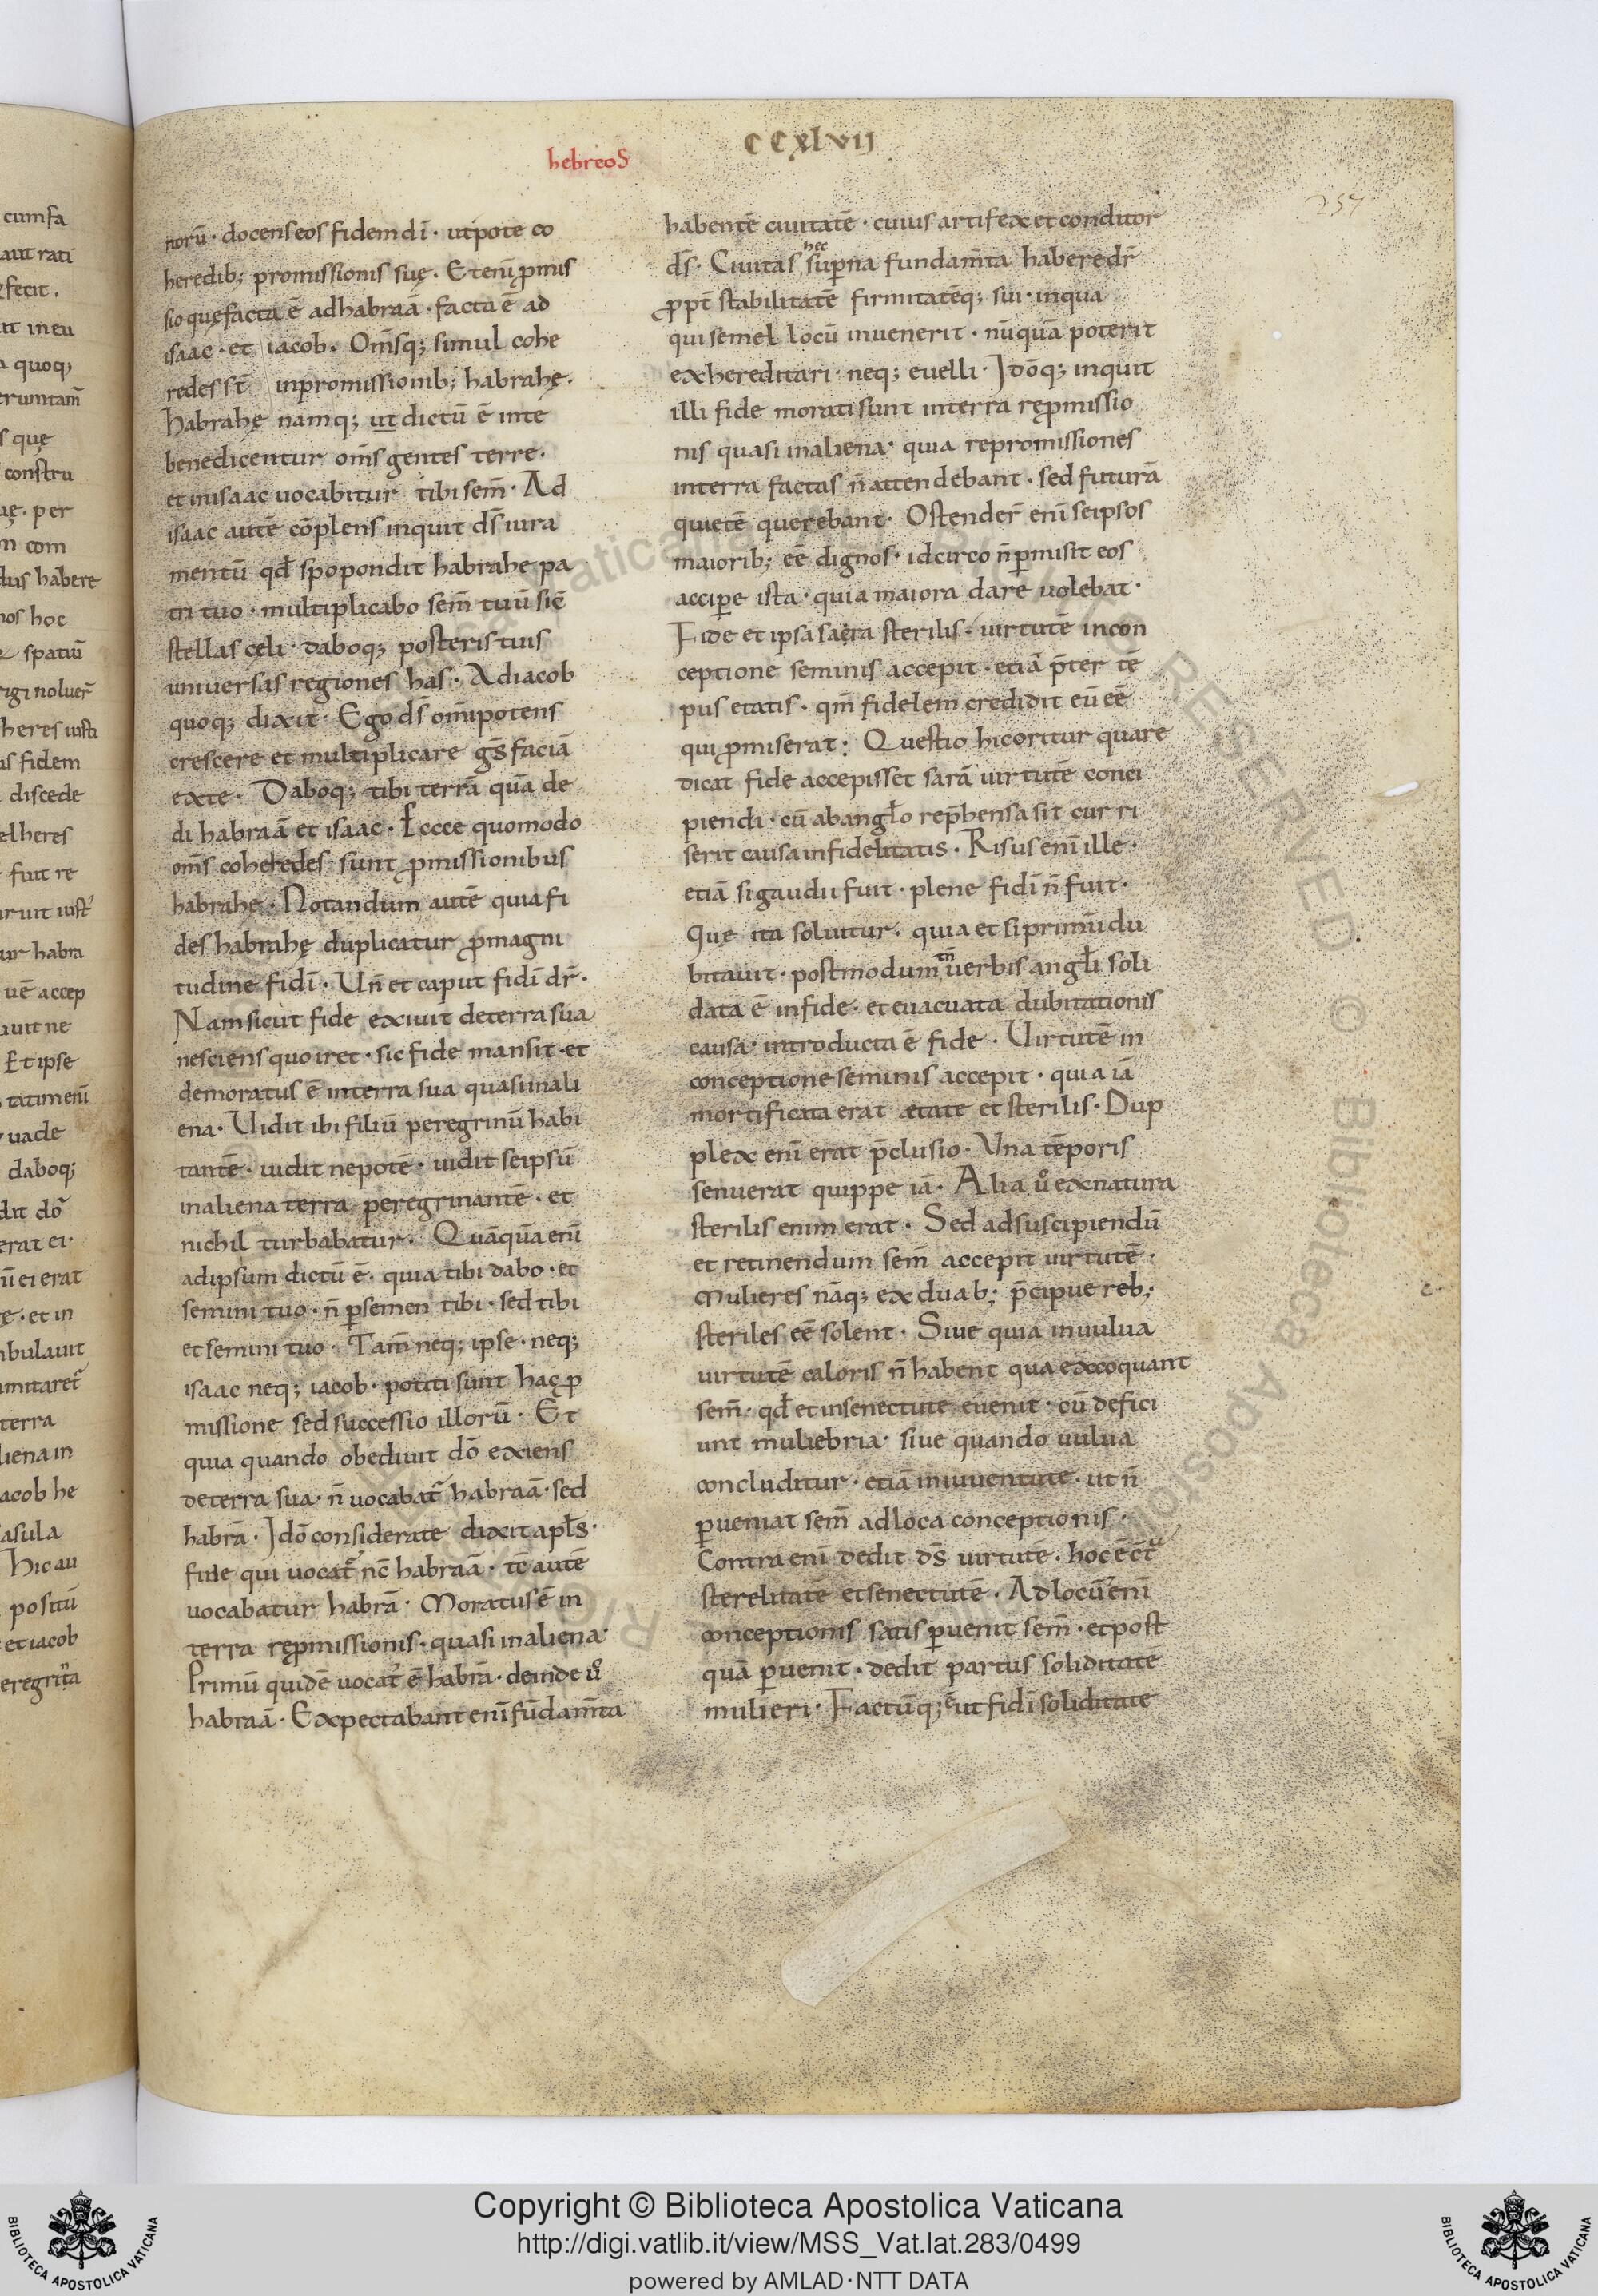 hebreoS
CCxlvij
257
norū· docens eos fidem dī· utpote co
heredib; promissionis suę. Etenī ꝓmis
sio quę facta ē ad habraā· facta ē ad
isaac· et iacob. Om̄sq; simul cohe
redes st̄ in promissionib; habrahę.
habrahę namq; ut dictū ē in te
benedicentur om̄s gentes terre.
et in isaac uocabitur tibi sem̄· Ad
isaac autē cōplens inquit ds̄ iura
mentū qđ spopondit habrahe pa
tri tuo· multiplicabo sem̄ tuū sic̄
stellas celi· daboq; posteris tuis
uniuersas regiones has· Ad iacob
quoq; dixit· Ego ds̄ om̄ipotens
crescere et multiplicare gs̄ faciā
ex te· Daboq; tibi terrā quā de
di habraā et isaac· Ecce quomodo
om̄s coheredes sunt ꝓmissionibus
habrahę· Notandum autē quia fi
des habrahę duplicatur ꝓ magni
tudine fidī· Un̄ et caput fidī dr̄·
Nam sicut fide exiuit de terra sua
nesciens quo iret· sic fide mansit· et
demoratus ē in terra sua quasi in ali
ena· Uidit ibi filiū peregrinū habi
tantē· uidit nepotē· uidit seipsū
in aliena terra peregrinantē· et
nichil turbabatur· Quāquā enī
ad ipsum dictū ē· quia tibi dabo· et
semini tuo· n̄ ꝑ semen tibi· sed tibi
et semini tuo· Tam̄ neq; ipse· neq;
isaac neq; iacob· potiti sunt hac ꝓ
missione sed successio illorū· Et
quia quando obediuit dō exiens
de terra sua· n̄ uocabat᷑ habraā· sed
habrā· Idō considerate dixit apl̄s·
fide qui uocat᷑ nc̄ habraā· tc̄ autē
uocabatur habrā· Moratus ē in
terra reꝓmissionis· quasi in aliena·
Primū quidē uocat᷑ ē habrā· deinde uͦ
habraā· Expectabant enī fūdam̄ta
habentē ciuitatē· cuius artifex et conditor
ds̄· Ciuitas hec suꝑna fundam̄ta habere dr̄
ꝓpt̄ stabilitatē firmitatēq; sui· in qua
qui semel locū inuenerit· nūquā poterit
exhereditari· neq; euelli· Idōq; inquit
illi fide morati sunt in terra reꝓmissio
nis quasi in aliena· quia repromissiones
in terra factas n̄ attendebant· sed futurā
quietē querebant· Ostender̄ enī seipsos
maiorib; eē dignos· idcirco n̄ ꝑmisit eos
acciꝑe ista· quia maiora dare uolebat·
Fide et ipsa saęra sterilis· uirtutē in con
ceptione seminis accepit· etiā p̄ter tē
pus etatis· qm̄ fidelem credidit eū eē
qui ꝓmiserat· Questio hic oritur quare
dicat fide accepisset sarā uirtutē conci
piendi· cū ab angl̄o rep̄hensa sit cur ri
serit causa infidelitatis· Risus enī ille·
etiā si gaudii fuit· plene fidī n̄ fuit·
Que ita soluitur· quia et si primū du
bitauit· postmodum tn̄ uerbis angl̄i soli
data ē in fide· et euacuata dubitationis
causa· introducta ē fide· Uirtutē in
conceptione seminis accepit· quia iā
mortificata erat ætate et sterilis· Dup
plex enī erat p̄clusio· Una tēporis
senuerat quippe iā· Alia uͦ ex natura
sterilis enim erat· Sed ad suscipiendū
et retinendum sem̄ accepit uirtutē·
Mulieres nāq; ex duab; p̄cipue reb;
steriles eē solent· Siue quia in uulua
uirtutē caloris n̄ habent qua excoquant
sem̄· qđ et in senectute euenit· cū defici
unt muliebria· siue quando uulua
concluditur· etiā in iuuentute· ut n̄
ꝑueniat sem̄ ad loca conceptionis·
Contra enī dedit ds̄ uirtutē· hoc ē ct̄
sterelitatē et senectutē· Ad locū enī
conceptionis satis ꝑuenit sem̄· et post
quā ꝑuenit· dedit partus soliditatē
mulieri· Factūq; ē ut fidī soliditate
Copyright © Biblioteca Apostolica Vaticana
http://digi.vatlib.it/view/MSS_Vat.lat.283/0499
powered by AMLAD·NTT DATA